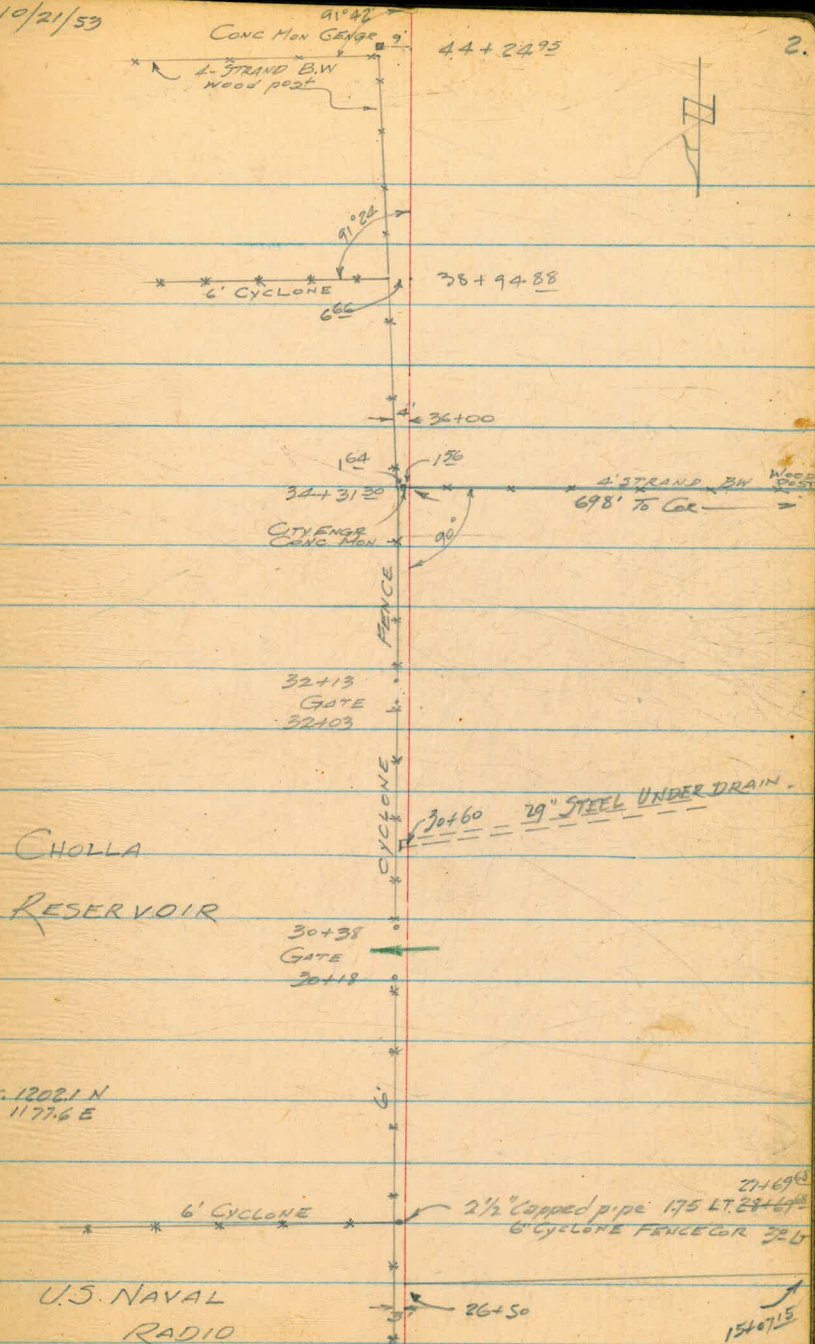 10/21/53
91°42'
CONC MON CENGR 9'
44+24 95
2.
4-STRAND B.W
wood post
91°24
38+94.88
6' CYCLONE
6 66
4'
36+00
1 64
1 56
34+31 30
4' STRAND BW WOOD POST
698' TO COR
CITY ENGR
CONC MON
90°
FENCE
32+13
GATE
32+03
CYCLONE
30+60 29" STEEL UNDER DRAIN.
CHOLLA
RESERVOIR
30+38
GATE
30+18
1202.1 N
1177.6 E
6'
27+69 68
6' CYCLONE
2½" Capped pipe 1.75 LT. 28+67 68
6' CYCLONE FENCE COR 3.0 LT
U.S. NAVAL
RADIO
3'
26+50
15+07 15